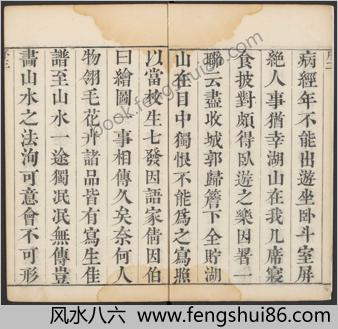 病經年不能出遊坐臥斗室屏
絕人事猶幸湖山在我几席寢
食披對頗得臥遊之樂因署一
聯云盡收城郭歸簷下全貯湖
山在目中獨恨不能為之寫照
以當枚生七發因語家倩因伯
曰繪圖一事相傳久矣奈何人
物翎毛花卉諸品皆有寫生佳
譜至山水一途獨泯泯無傳豈
畫山水之法洵可意會不可形
风水八六 - www.fengshui86.com